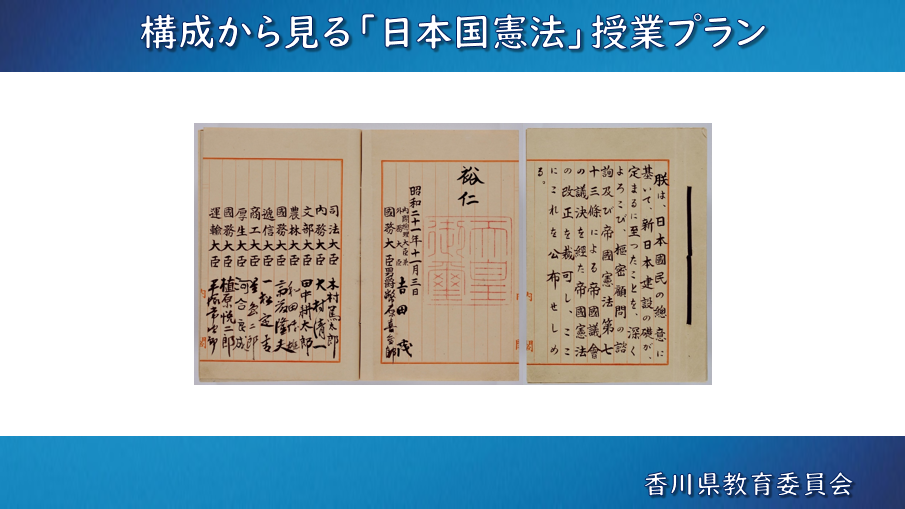 構成から見る「日本国憲法」授業プラン
朕は、日本國民の總意に
基いて、新日本建設の礎が、
定まるに至つたことを、深く
よろこび、樞密顧問の諮
詢及び帝國憲法第七
十三條による帝國議會
の議決を経た帝國憲法
の改正を裁可し、ここ
にこれを公布せしめ
る。
裕仁
昭和二十一年十一月三日
内閣總理大臣兼
外務大臣
吉田茂
國務大臣男爵幣原喜重郎
司法大臣木村篤太郎
内務大臣大村清一
文部大臣田中耕太郎
農林大臣和田博雄
國務大臣斎藤隆夫
逓信大臣一松定吉
商工大臣星島二郎
厚生大臣河合良成
國務大臣植原悦二郎
運輸大臣平塚常次郎
香川県教育委員会